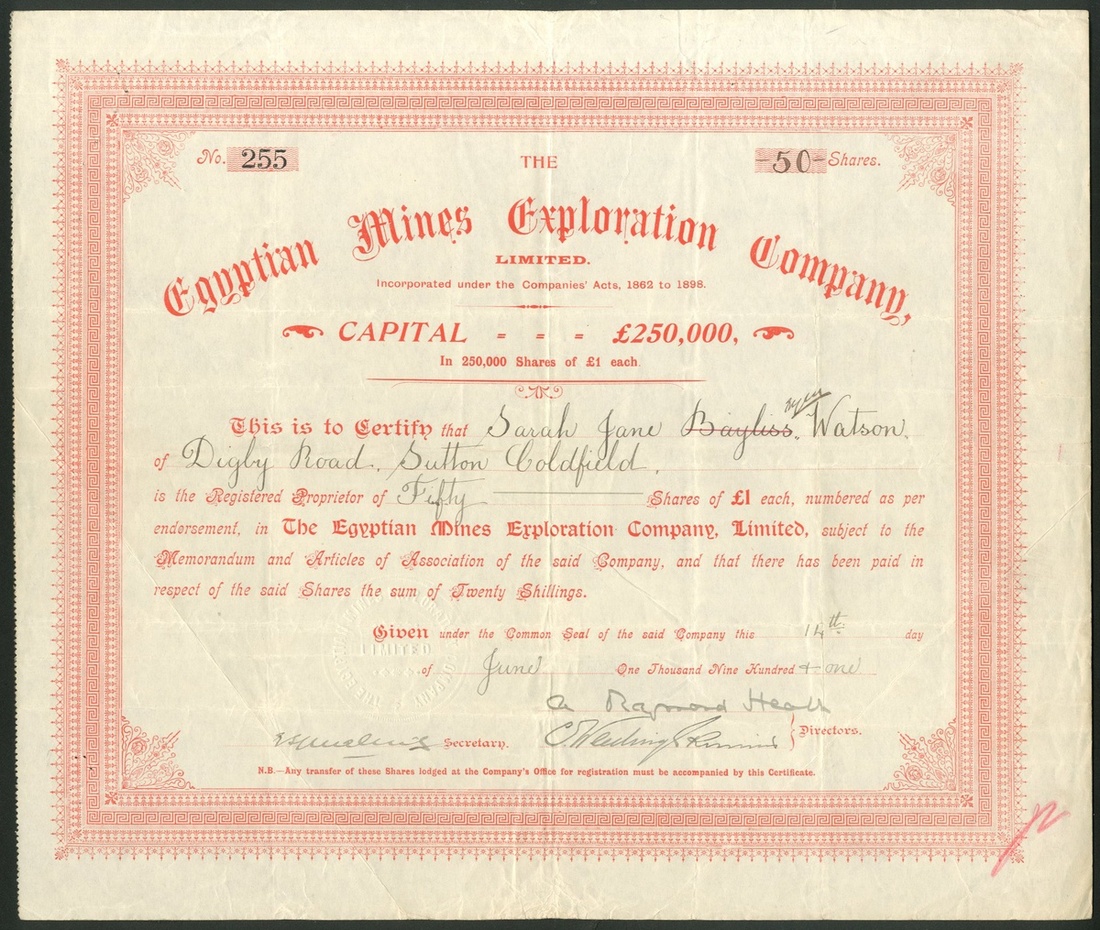 No. 255
THE
-50- Shares.
Egyptian Mines Exploration Company,
LIMITED.
Incorporated under the Companies' Acts, 1862 to 1898.
CAPITAL = = = £250,000,
In 250,000 Shares of £1 each.
This is to Certify that Sarah Jane Bayliss, Watson,
of Digby Road, Sutton Coldfield,
is the Registered Proprietor of Fifty Shares of £1 each, numbered as per
endorsement, in The Egyptian Mines Exploration Company, Limited, subject to the
Memorandum and Articles of Association of the said Company, and that there has been paid in
respect of the said Shares the sum of Twenty Shillings.
Given under the Common Seal of the said Company this 14th day
of June One Thousand Nine Hundred & one
LIMITED
A Raymond Heath
Secretary.
Directors.
N.B.—Any transfer of these Shares lodged at the Company's Office for registration must be accompanied by this Certificate.